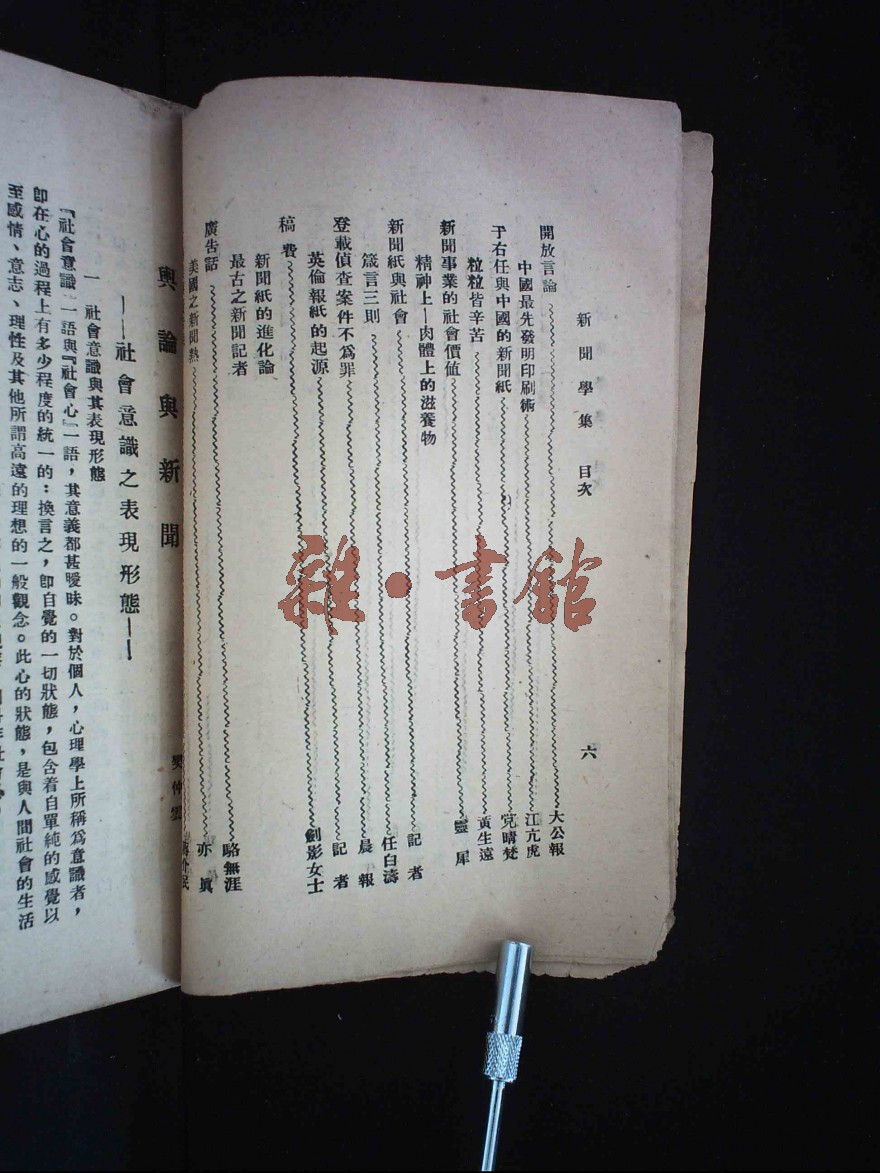 新聞學集 目次 六
開放言論 大公報
中國最先發明印刷術 江亢虎
于右任與中國的新聞紙 党晴梵
粒粒皆辛苦 黃生遠
新聞事業的社會價値 靈犀
精神上—肉體上的滋養物
新聞紙與社會 記者
箴言三則 任白濤
登載偵查案件不爲罪 晨報
英倫報紙的起源 記者
稿費 劍影女士
新聞紙的進化論
最古之新聞記者 略無涯
廣告話 亦眞
美國之新聞熱
輿論與新聞 樊仲雲
——社會意識之表現形態——
一 社會意識與其表現形態
『社會意識』一語與『社會心』一語，其意義都甚曖昧。對於個人，心理學上所稱爲意識者，
卽在心的過程上有多少程度的統一的：換言之，卽自覺的一切狀態，包含着自單純的感覺以
至感情、意志、理性及其他所謂高遠的理想的一般觀念。此心的狀態，是與人間社會的生活
雜·書館